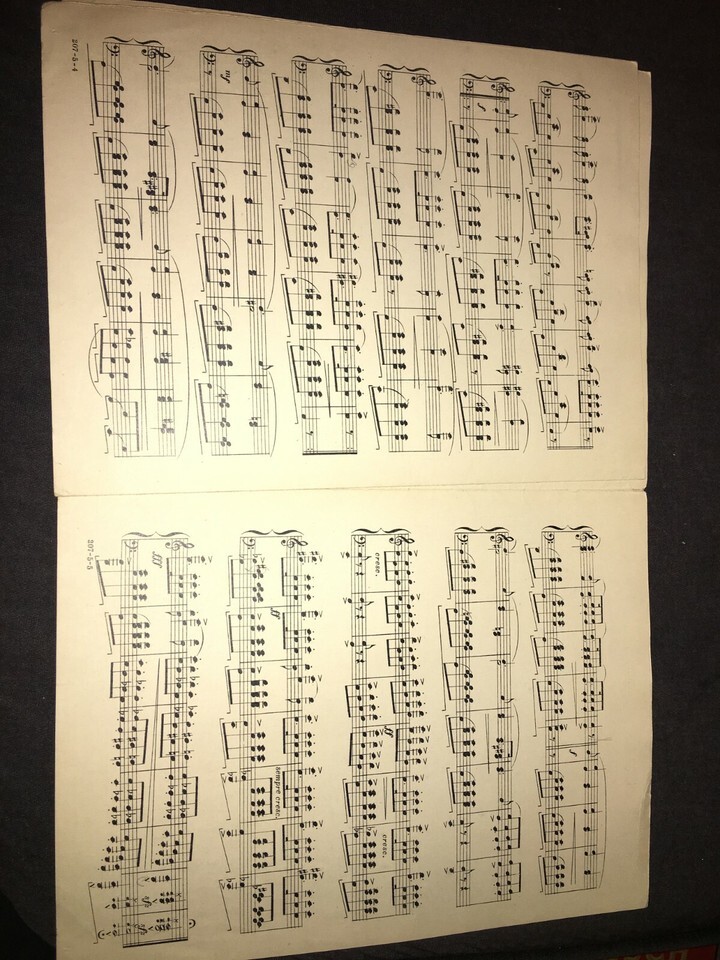 f
mf
207-5-4
f
cresc. ff cresc.
ff sempre cresc.
fff
207-5-5